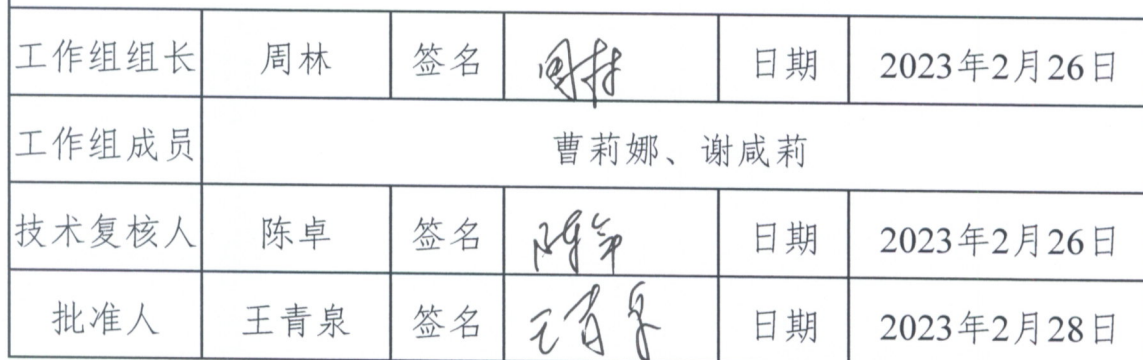 工作组组长 周林 签名 周林 日期 2023年2月26日
工作组成员 曹莉娜、谢咸莉
技术复核人 陈卓 签名 陈卓 日期 2023年2月26日
批准人 王青泉 签名 王青泉 日期 2023年2月28日